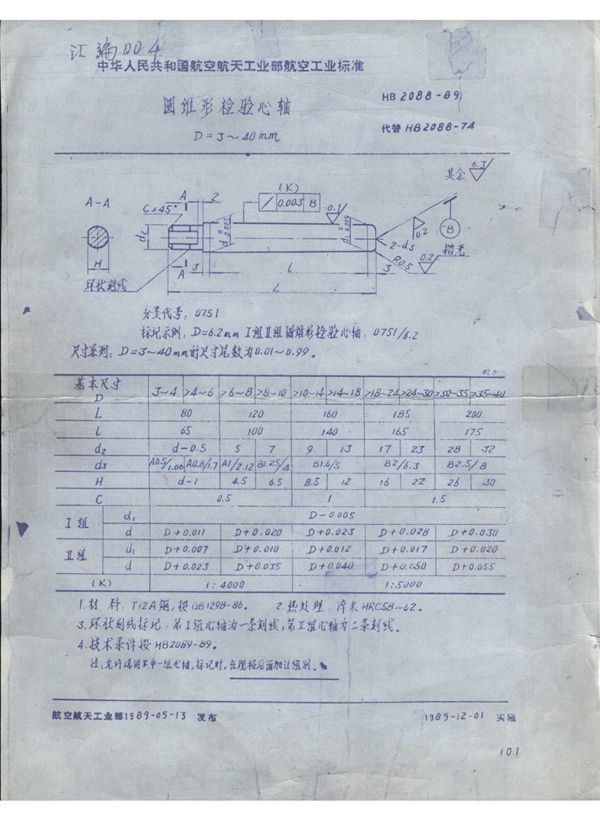 汇编004
中华人民共和国航空航天工业部航空工业标准
圆锥形检验心轴
D=3~40mm
HB 2088-89
代替 HB2088-74
其余 6.3
A-A
C×45°
A
2
(K)
0.003 B
0.1
d2
d 0.005
d1 0.005
0.2
B
2-d3
措光
R0.5
0.2
H
A
3
l
3
L
环状刻线
分类代号: 0751
标记示例: D=6.2mm I组 II组圆锥形检验心轴: 0751/6.2
尺寸系列: D=3~40mm的尺寸尾数为0.01~0.99。
基本尺寸 D 3~4 >4~6 >6~8 >8~10 >10~14 >14~18 >18~24 >24~30 >30~35 >35~40
L 80 120 160 185 200
l 65 100 140 165 175
d2 d-0.5 5 7 9 13 17 23 28 32
d3 A0.5/1.06 A0.8/1.7 A1/2.12 B1.25/4 B1.6/5 B2/6.3 B2.5/8
H d-1 4.5 6.5 8.5 12 16 22 26 30
C 0.5 1 1.5
I组 d1 D-0.005
d D+0.011 D+0.020 D+0.023 D+0.028 D+0.030
II组 d1 D+0.007 D+0.010 D+0.012 D+0.017 D+0.020
d D+0.023 D+0.035 D+0.040 D+0.050 D+0.055
(K) 1:4000 1:5000
1. 材 料: T12A钢, 按GB1298-86. 2. 热处理: 淬火HRC58~62.
3. 环状刻线标记: 第I组心轴为一条刻线, 第II组心轴为二条刻线.
4. 技术条件按HB2089-89.
航空航天工业部1989-05-13 发布
1989-12-01 实施
101